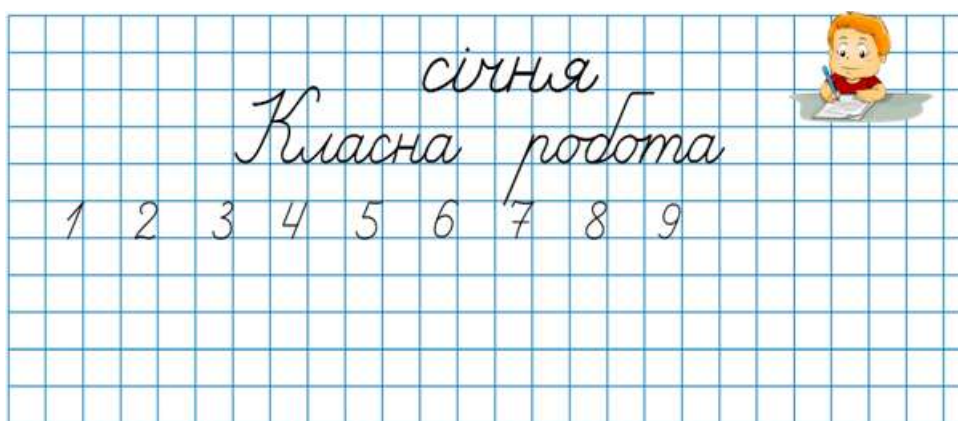 січня
Класна робота
1 2 3 4 5 6 7 8 9